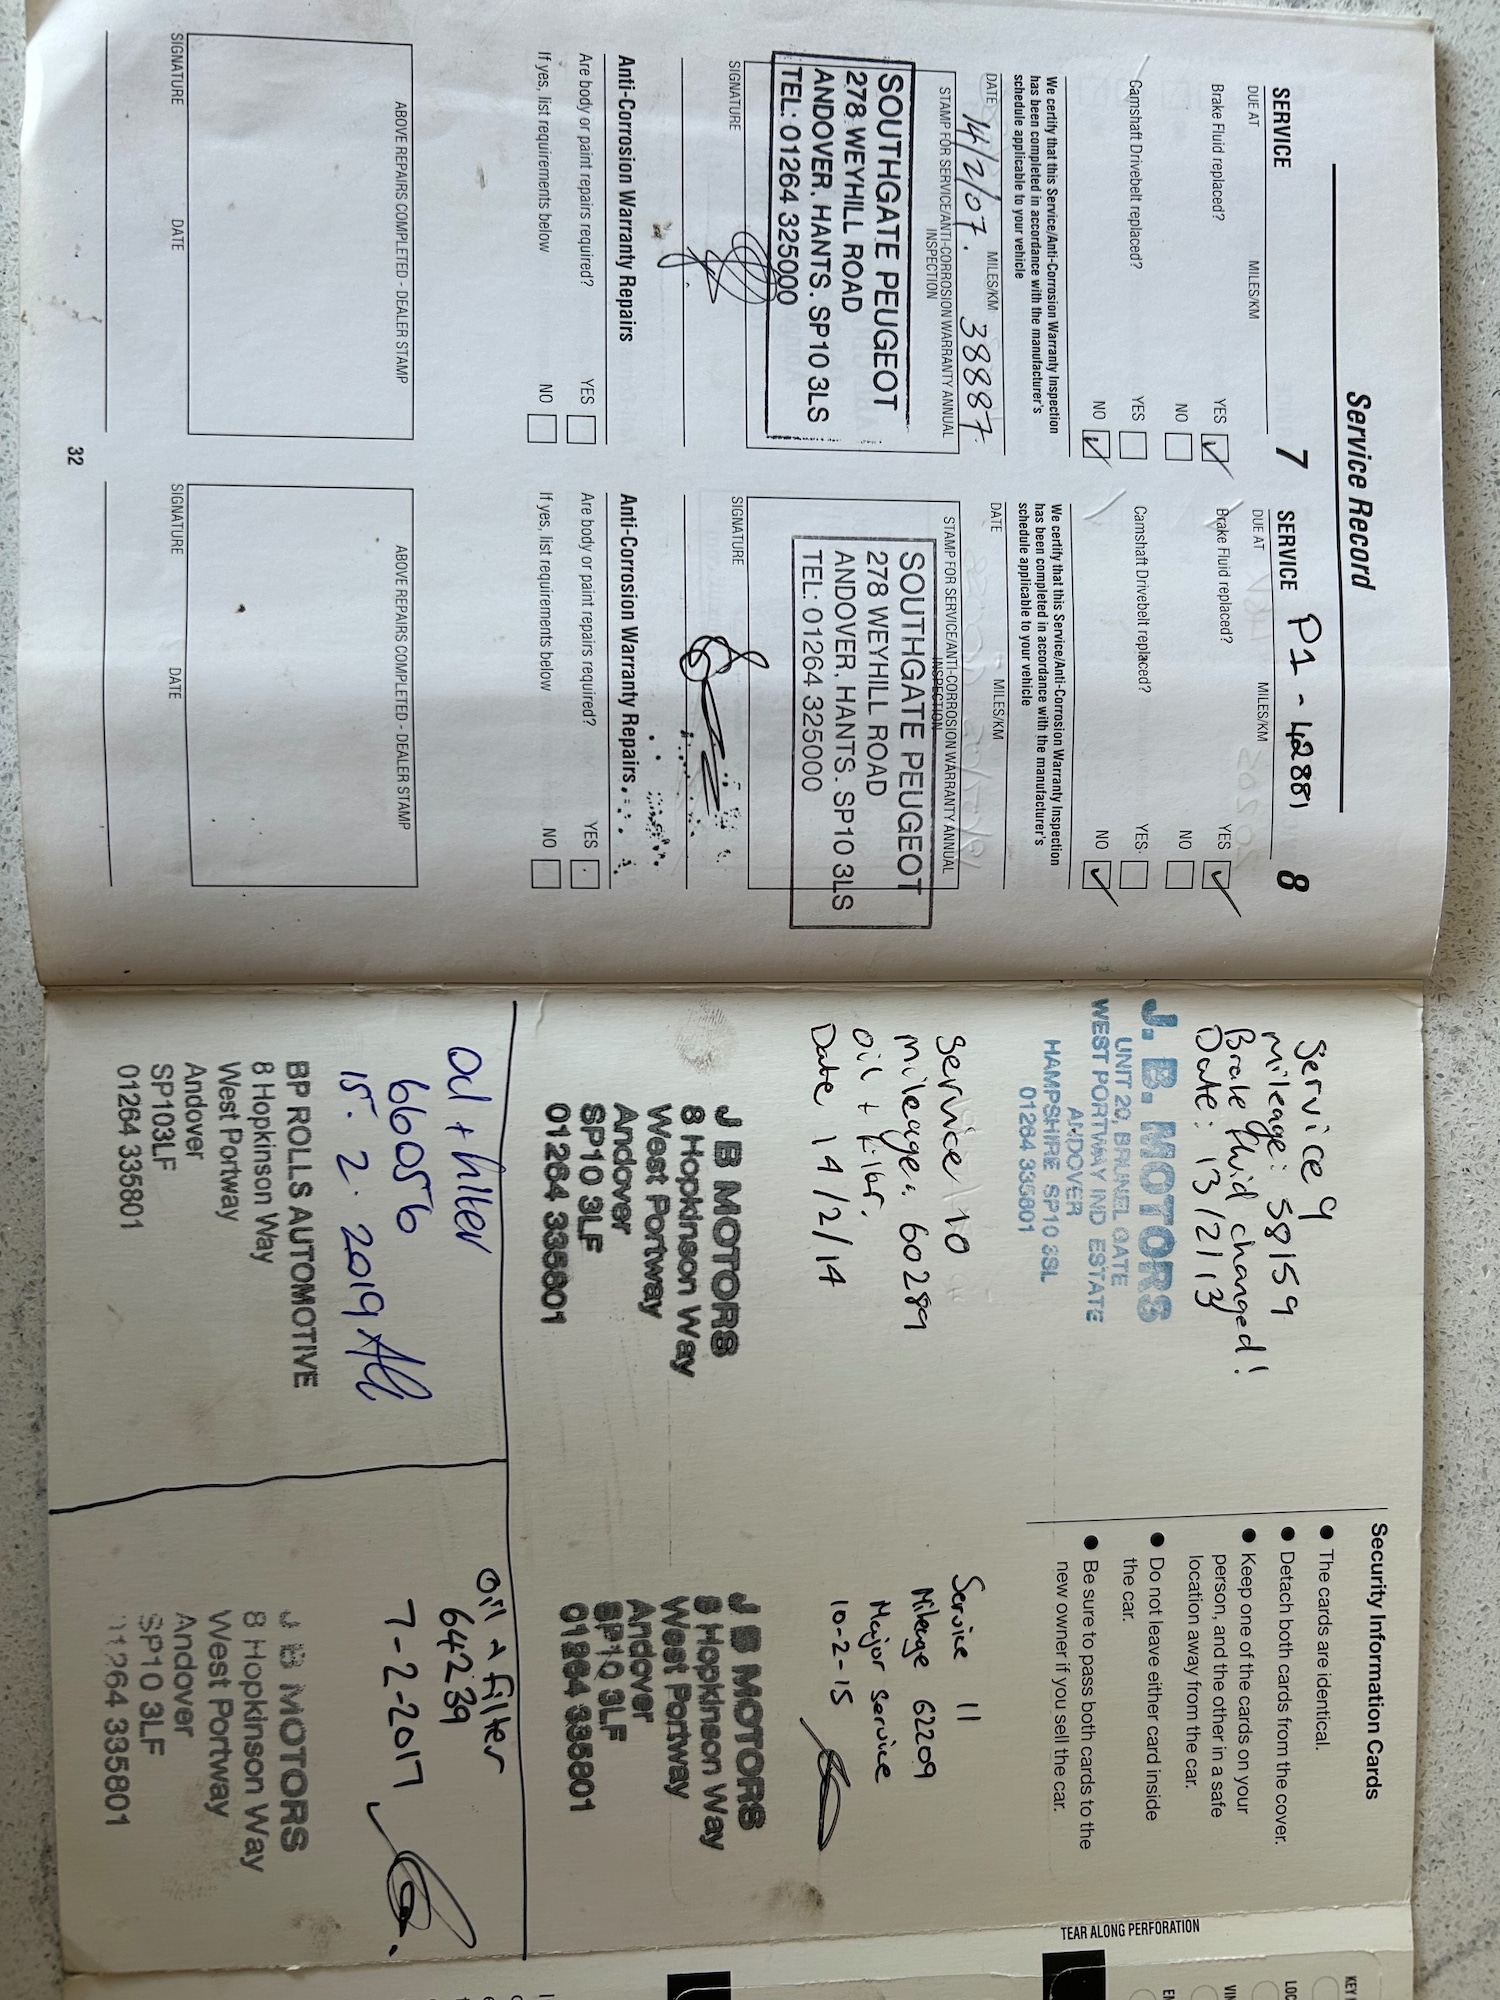 Service Record
SERVICE 7
DUE AT MILES/KM
Brake Fluid replaced? YES
NO
Camshaft Drivebelt replaced? YES
NO
We certify that this Service/Anti-Corrosion Warranty Inspection
has been completed in accordance with the manufacturer's
schedule applicable to your vehicle
DATE 14/2/07. MILES/KM 38887.
STAMP FOR SERVICE/ANTI-CORROSION WARRANTY ANNUAL
INSPECTION
SOUTHGATE PEUGEOT
278 WEYHILL ROAD
ANDOVER, HANTS. SP10 3LS
TEL: 01264 325000
SIGNATURE
Anti-Corrosion Warranty Repairs
Are body or paint repairs required? YES
If yes, list requirements below NO
ABOVE REPAIRS COMPLETED - DEALER STAMP
SIGNATURE DATE
32
SERVICE P1 - 42881 8
DUE AT MILES/KM
Brake Fluid replaced? YES
NO
Camshaft Drivebelt replaced? YES
NO
We certify that this Service/Anti-Corrosion Warranty Inspection
has been completed in accordance with the manufacturer's
schedule applicable to your vehicle
DATE MILES/KM
STAMP FOR SERVICE/ANTI-CORROSION WARRANTY ANNUAL
INSPECTION
SOUTHGATE PEUGEOT
278 WEYHILL ROAD
ANDOVER, HANTS. SP10 3LS
TEL: 01264 325000
SIGNATURE
Anti-Corrosion Warranty Repairs
Are body or paint repairs required? YES
If yes, list requirements below NO
ABOVE REPAIRS COMPLETED - DEALER STAMP
SIGNATURE DATE
Service 9
Mileage: 58159
Brake fluid changed!
Date: 13/2/13
J. B. MOTORS
UNIT 20, BRUNEL GATE
WEST PORTWAY IND ESTATE
ANDOVER
HAMPSHIRE SP10 3SL
01264 335801
Service 10
Mileage: 60289
oil + filter.
Date 14/2/14
J B MOTORS
8 Hopkinson Way
West Portway
Andover
SP10 3LF
01264 335801
Oil + filter
66056
15. 2. 2019
BP ROLLS AUTOMOTIVE
8 Hopkinson Way
West Portway
Andover
SP103LF
01264 335801
Security Information Cards
● The cards are identical.
● Detach both cards from the cover.
● Keep one of the cards on your
person, and the other in a safe
location away from the car.
● Do not leave either card inside
the car.
● Be sure to pass both cards to the
new owner if you sell the car.
Service 11
Mileage 62209
Major service
10-2-15
J B MOTORS
8 Hopkinson Way
West Portway
Andover
SP10 3LF
01264 335801
Oil & filter
64239
7-2-2017
J B MOTORS
8 Hopkinson Way
West Portway
Andover
SP10 3LF
01264 335801
TEAR ALONG PERFORATION
KEY
LOC
VIN